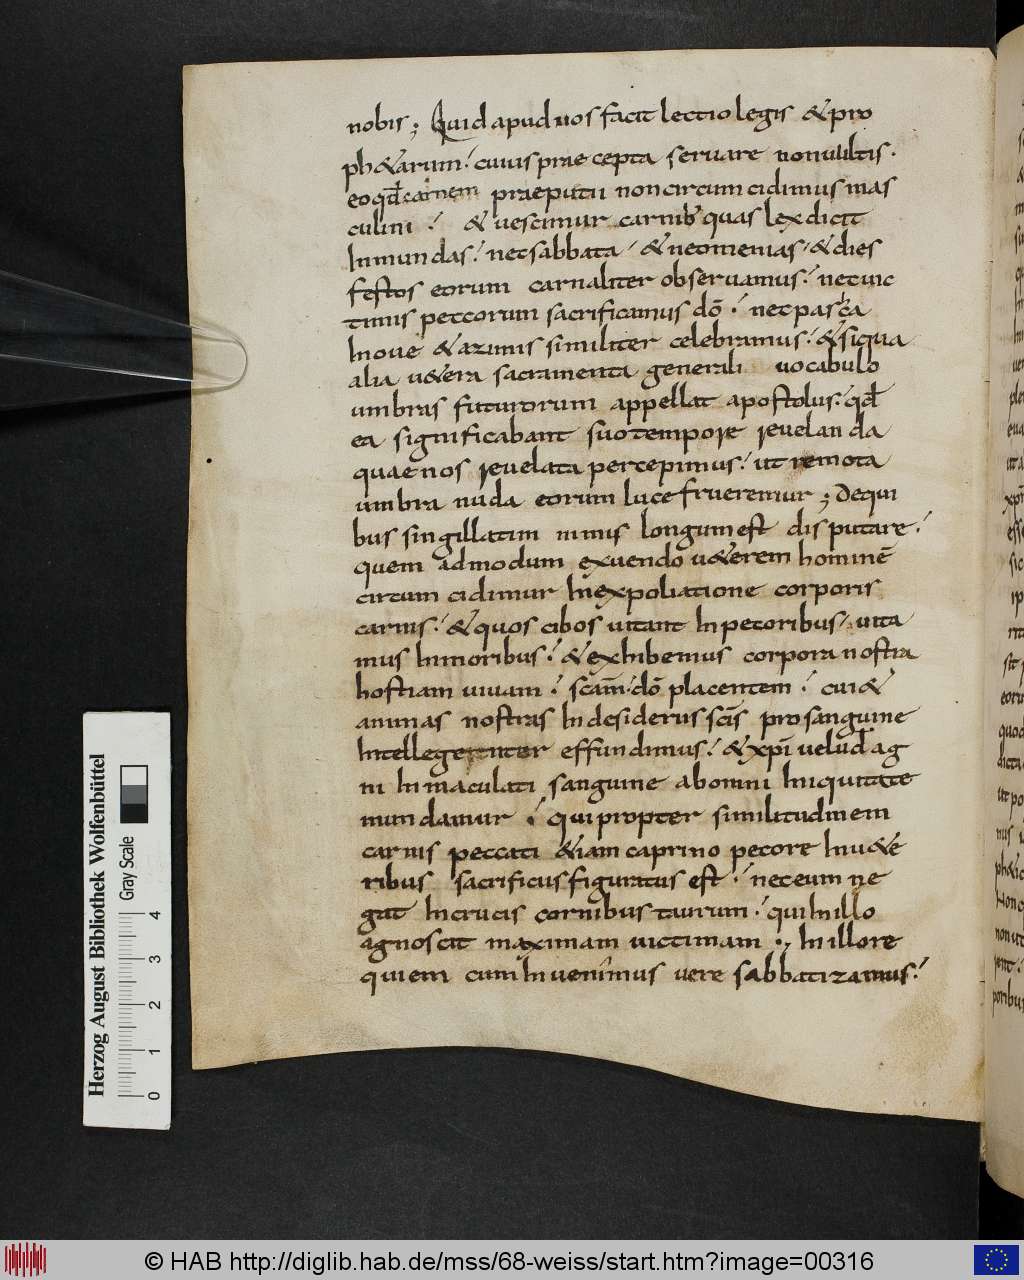 nobis; Quid apud uos facit lectio legis & pro
ph&arum. cuius praecepta seruare non uultis.
eo qđ carnem praeputii non circumcidimus mas
culini? & uescimur carnib; quas lex dicit
Inmundas. nec sabbata. & neomenias. & dies
festos eorum carnaliter obseruamus. nec uic
timis pecorum sacrificamus dō. nec pascha
In oue & azimis similiter celebramus. & siqua
alia u&era sacramenta generali uocabulo
umbras futurorum appellat apostolus. qđ
ea significabant suo tempore reuelanda
quae nos reuelata percepimus. ut remota
umbra nuda eorum luce frueremur; De qui
bus singillatim nimis longum est disputare.
quem admodum exuendo u&erem hominē
circumcidimur In expoliatione corporis
carnis. & quos cibos uitant In pecoribus. uita
mus In moribus. & exhibemus corpora nostra
hostiam uiuam. scām. dō placentem. cui &
animas nostras In desideriis scīs pro sanguine
Intellegenter effundimus. & xpī uelud ag
ni Inmaculati sanguine ab omni Iniquitate
mundamur. qui propter similitudinem
carnis peccati &iam caprino pecore In u&e
ribus sacrificiis figuratus est. nec eum ne
gat In crucis cornibus taurum. qui In illo
agnoscit maximam uictimam., In illo re
quiem cum Inuenimus uere sabbatizamus.
Herzog August Bibliothek Wolfenbüttel
Gray Scale
0 1 2 3 4
© HAB http://diglib.hab.de/mss/68-weiss/start.htm?image=00316